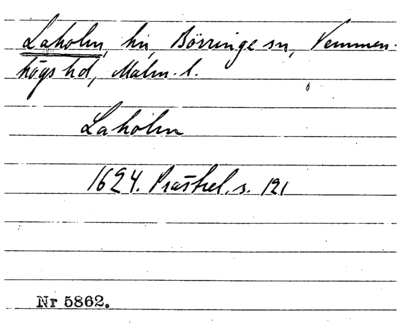 Laholm, hm, Börringe sn, Vemmen-
högs hd, Malm. l.
Laholm
1624. Prästrel. s. 121
Nr 5862.